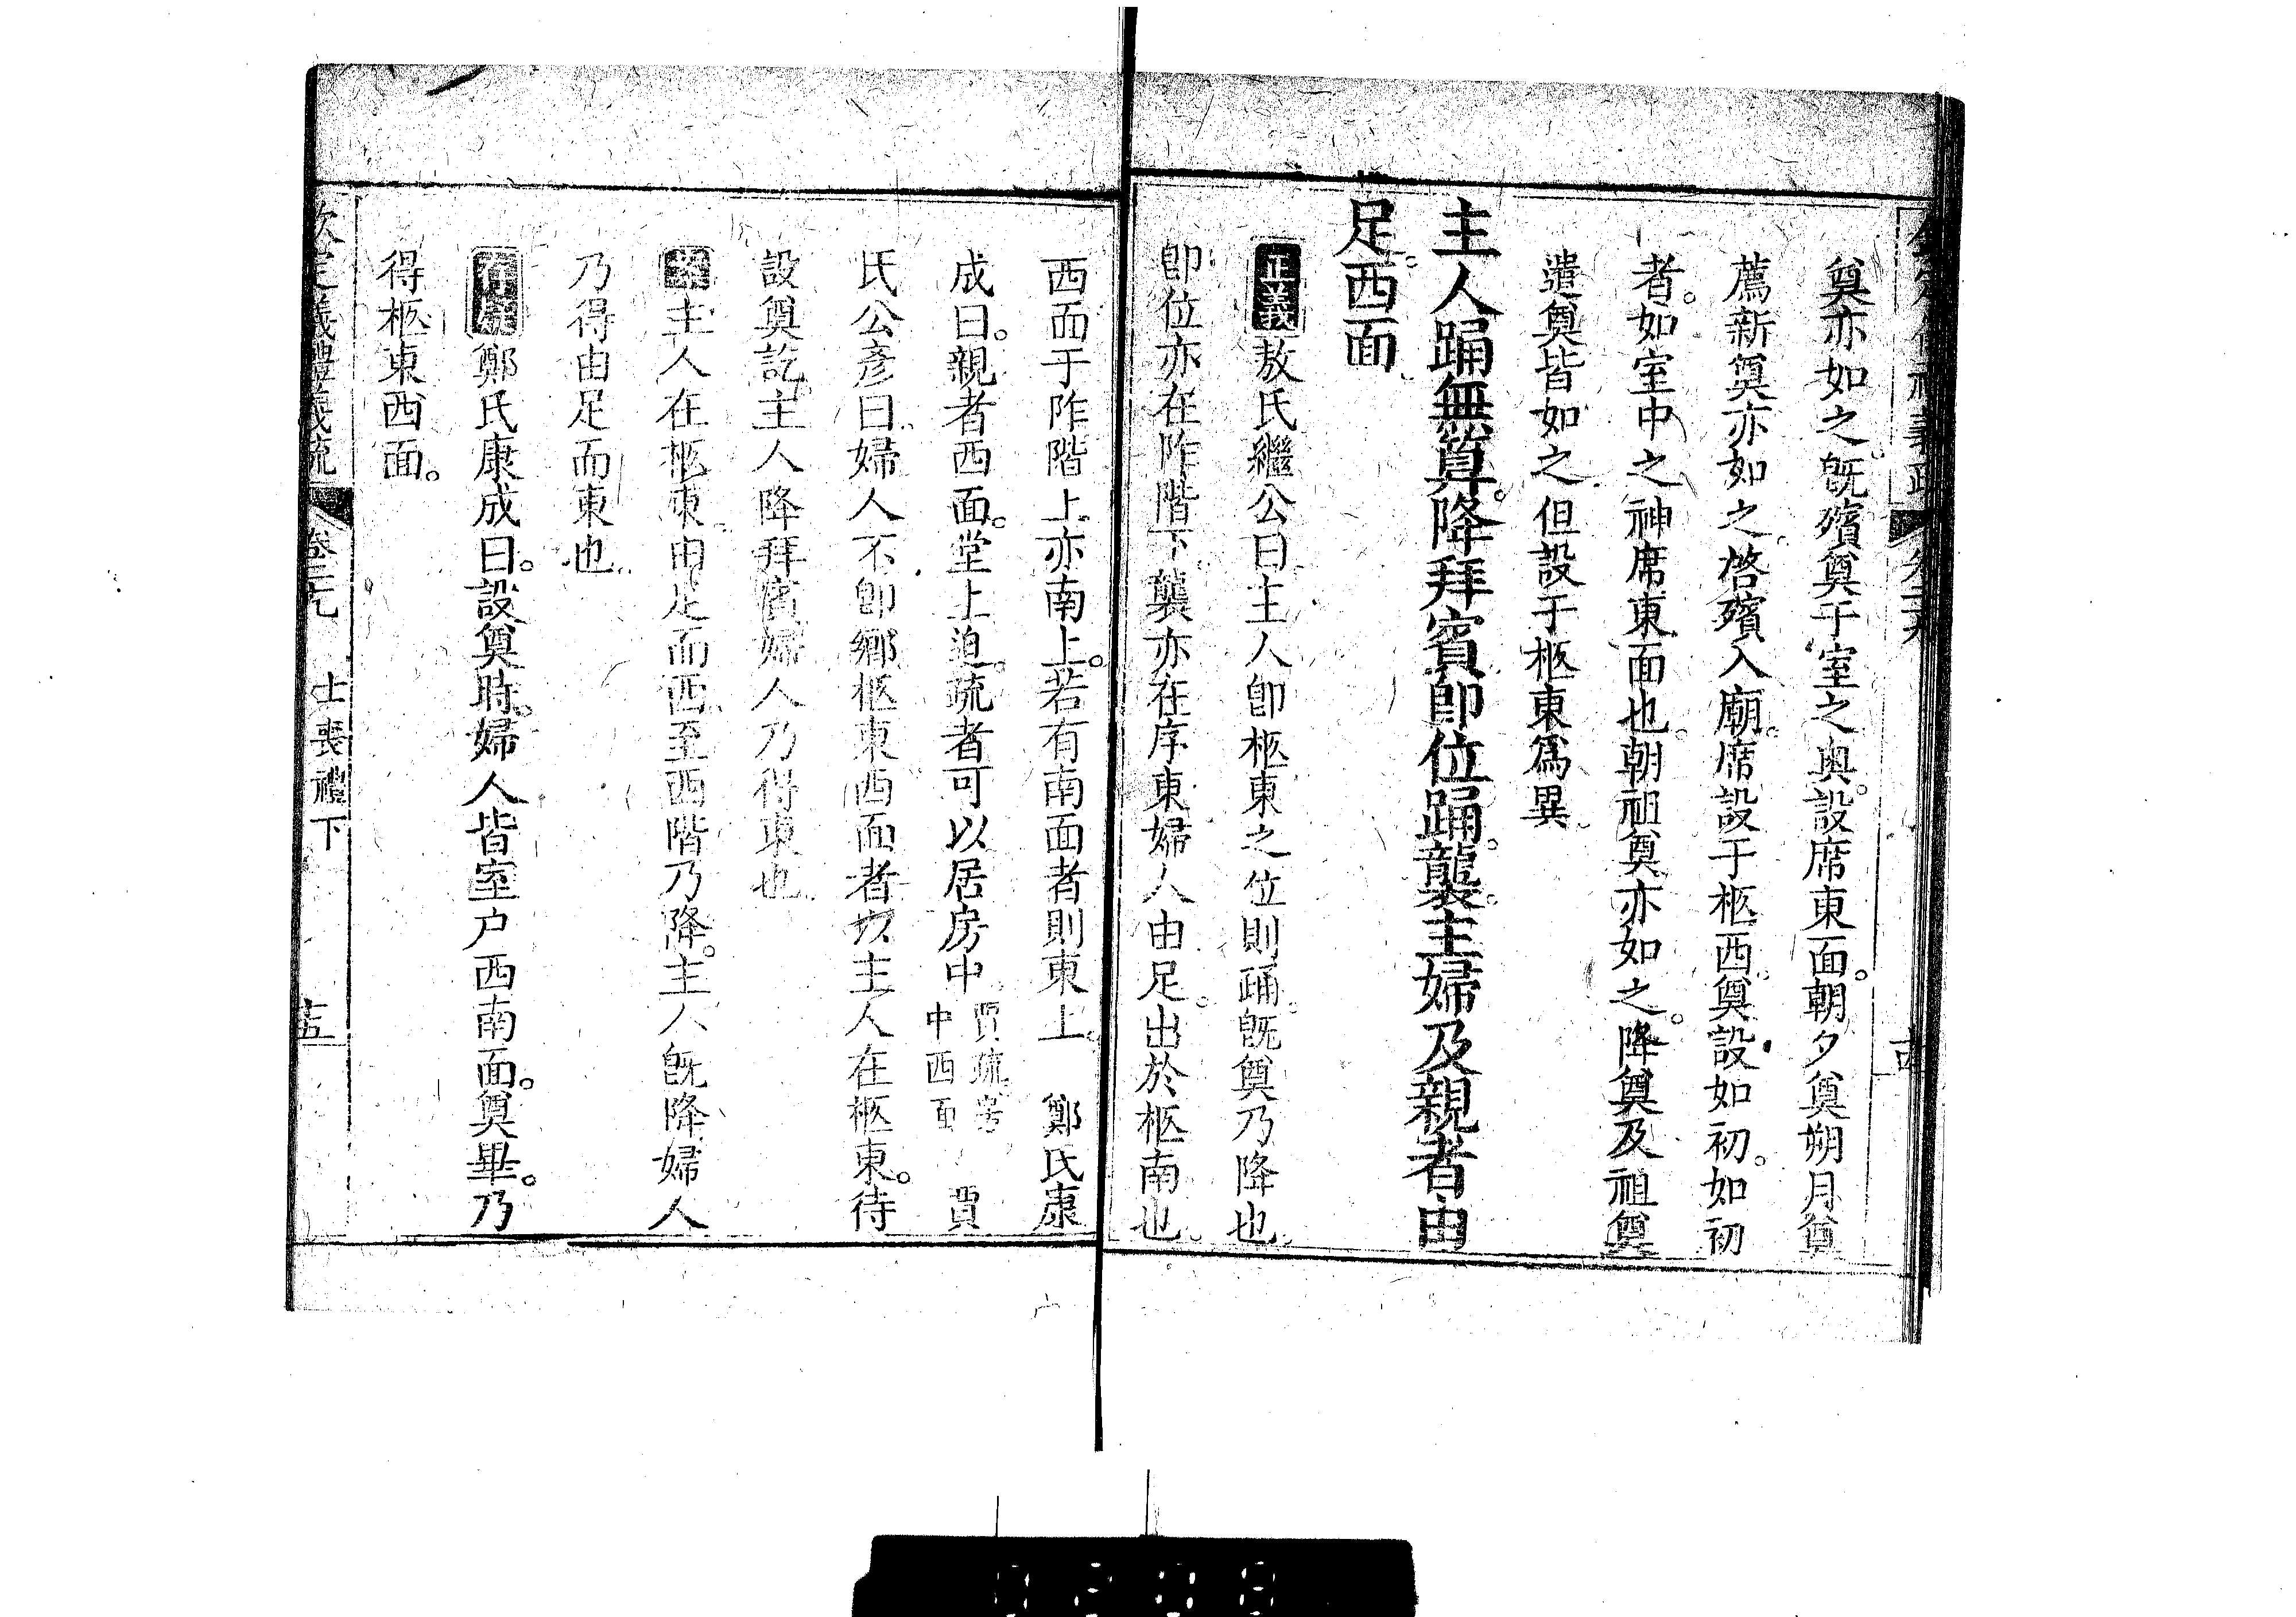 奠亦如之。旣殯奠于室之奥。設席東面。朝夕奠朔月奠
薦新奠亦如之。啓殯入廟。席設于柩西。奠設如初。如初
者。如室中之神席東面也。朝祖奠亦如之。降奠及祖奠
遣奠皆如之但設于柩東爲異
主人踊無算。降拜賓卽位踊。襲。主婦及親者由
足。西面
正義敖氏繼公曰主人卽柩東之位則踊。旣奠乃降也。
卽位亦在阼階下。襲亦在序東婦人由足。出於柩南也。
西面于阼階上。亦南上。若有南面者則東上。 鄭氏康
成曰。親者西面。堂上迫。疏者可以居房中。賈疏房中西面 賈
氏公彥曰。婦人不卽鄉柩東西面者以主人在柩東。待
設奠訖。主人降拜賓婦人乃得東也
主人在柩東。由足而西。至西階乃降。主人旣降婦人
乃得由足而東也。
鄭氏康成曰。設奠時。婦人皆室户西南面。奠畢。乃
得柩東西面。
欽定儀禮義疏 卷二九 士喪禮下 十五